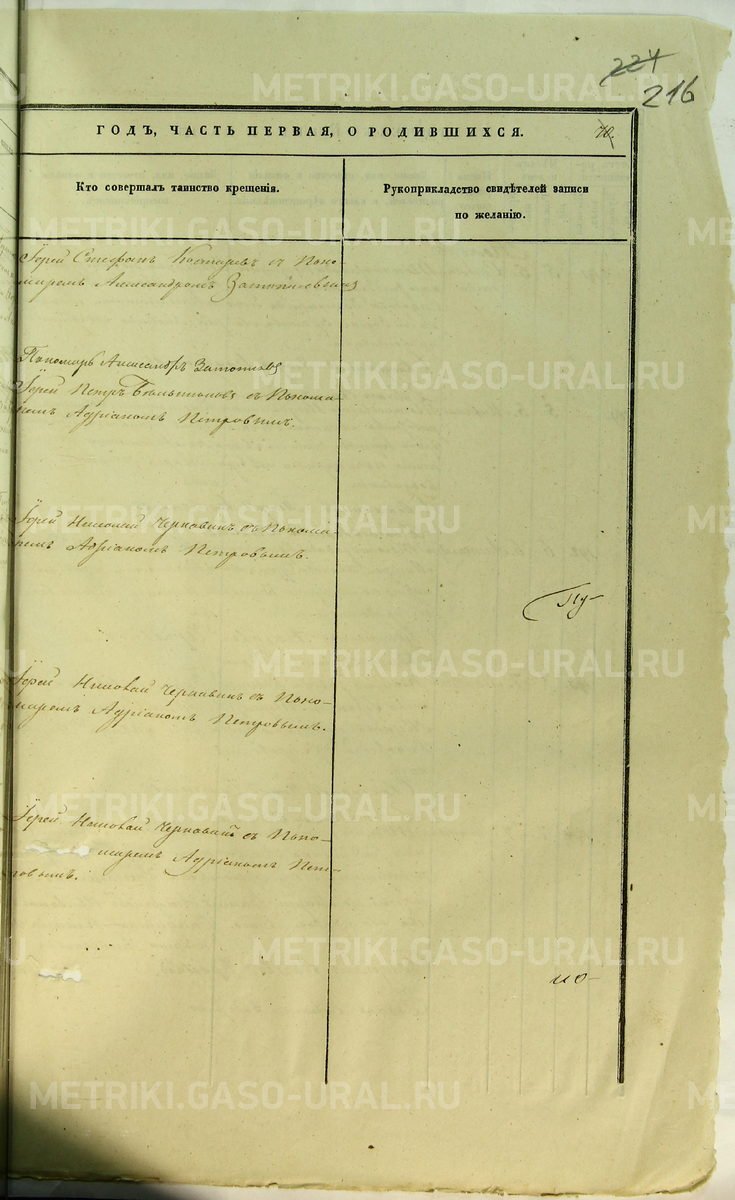 224
216
ГОДЪ, ЧАСТЬ ПЕРВАЯ, О РОДИВШИХСЯ.
Кто совершалъ таинство крещенія.
Рукоприкладство свидѣтелей записи
по желанію.
Іерей Стефанъ съ Поно-
маремъ Александромъ
Пономарь Александръ
Іерей Петръ съ Понома-
ремъ Адріаномъ Петровымъ.
Іерей Николай Чернавинъ съ Понома-
ремъ Адріаномъ Петровымъ.
Пу-
Іерей Николай Чернавинъ съ Поно-
маремъ Адріаномъ Петровымъ.
Іерей Николай Чернавинъ съ Поно-
маремъ Адріаномъ Пет-
ровымъ.
но-
METRIKI.GASO-URAL.RU